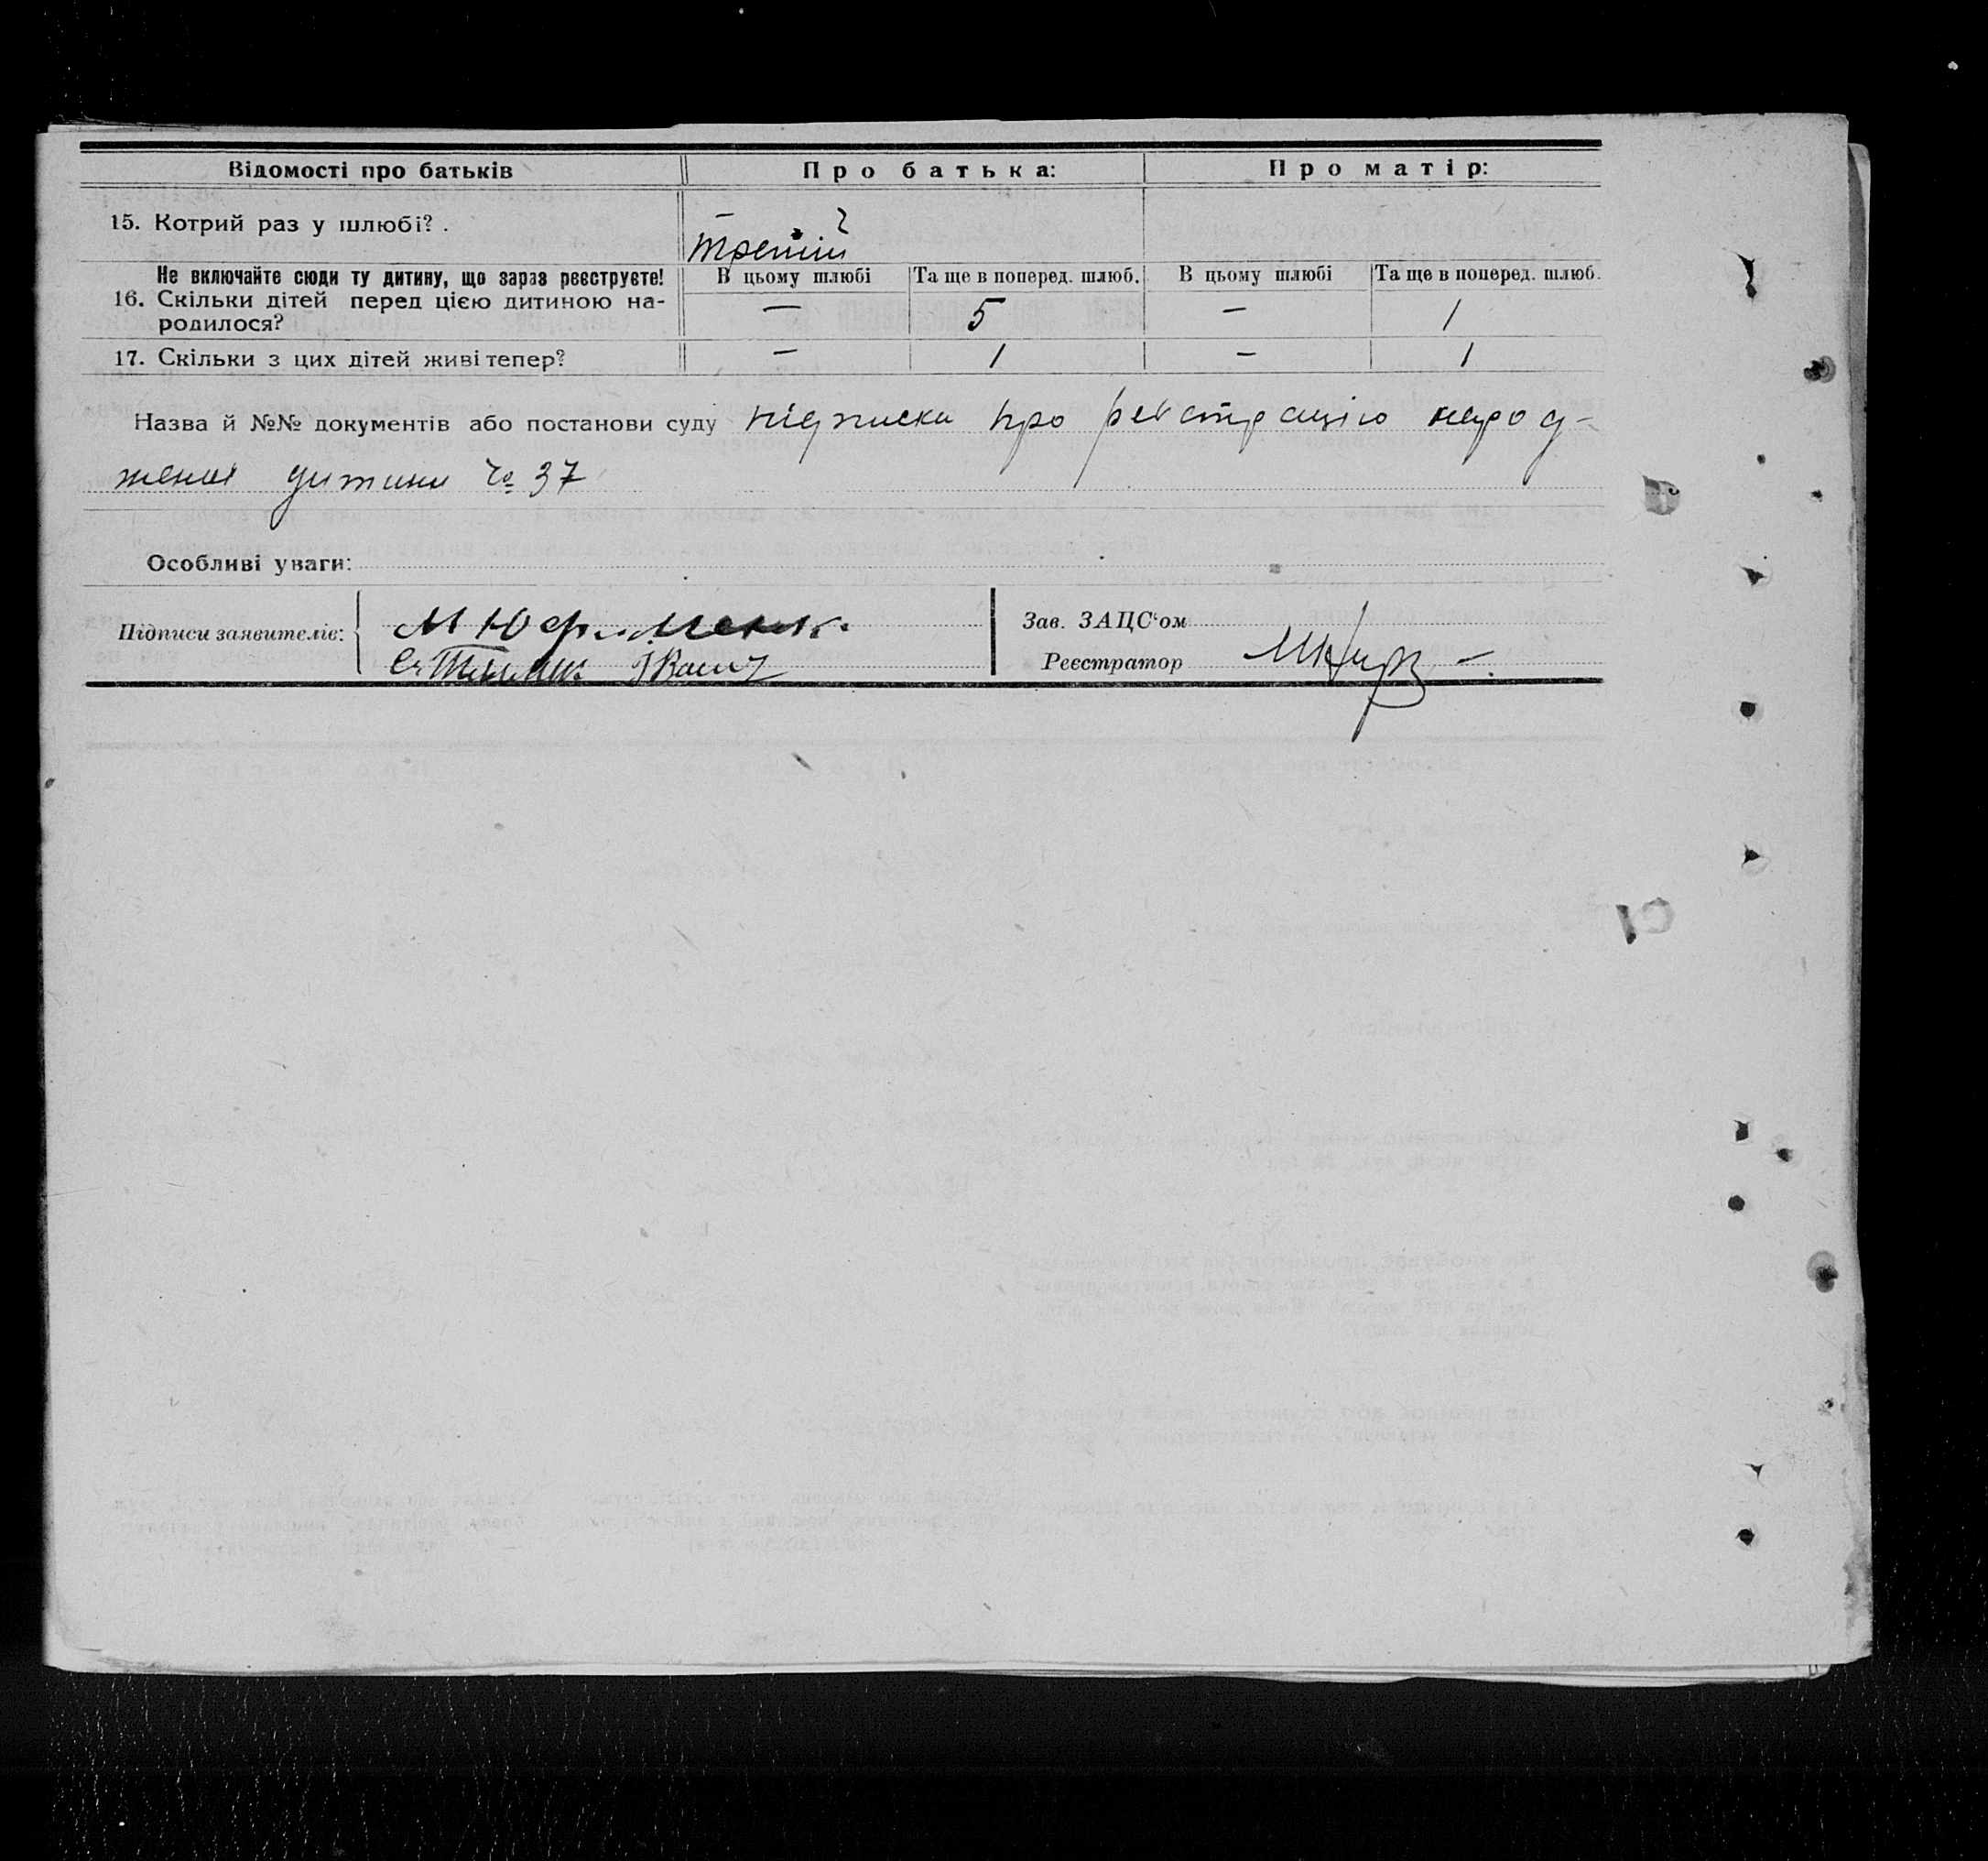 Відомості про батьків Про батька: Про матір:
15. Котрий раз у шлюбі? . третій
Не включайте сюди ту дитину, що зараз реєструєте! В цьому шлюбі Та ще в поперед. шлюб. В цьому шлюбі Та ще в поперед. шлюб.
16. Скільки дітей перед цією дитиною на-
родилося? — 5 — 1
17. Скільки з цих дітей живі тепер? — 1 — 1
Назва й №№ документів або постанови суду підписка про реєстрацію народ-
женої дитини № 37
Особливі уваги:
Підписи заявителів:
Зав. ЗАЦС'ом
Реєстратор